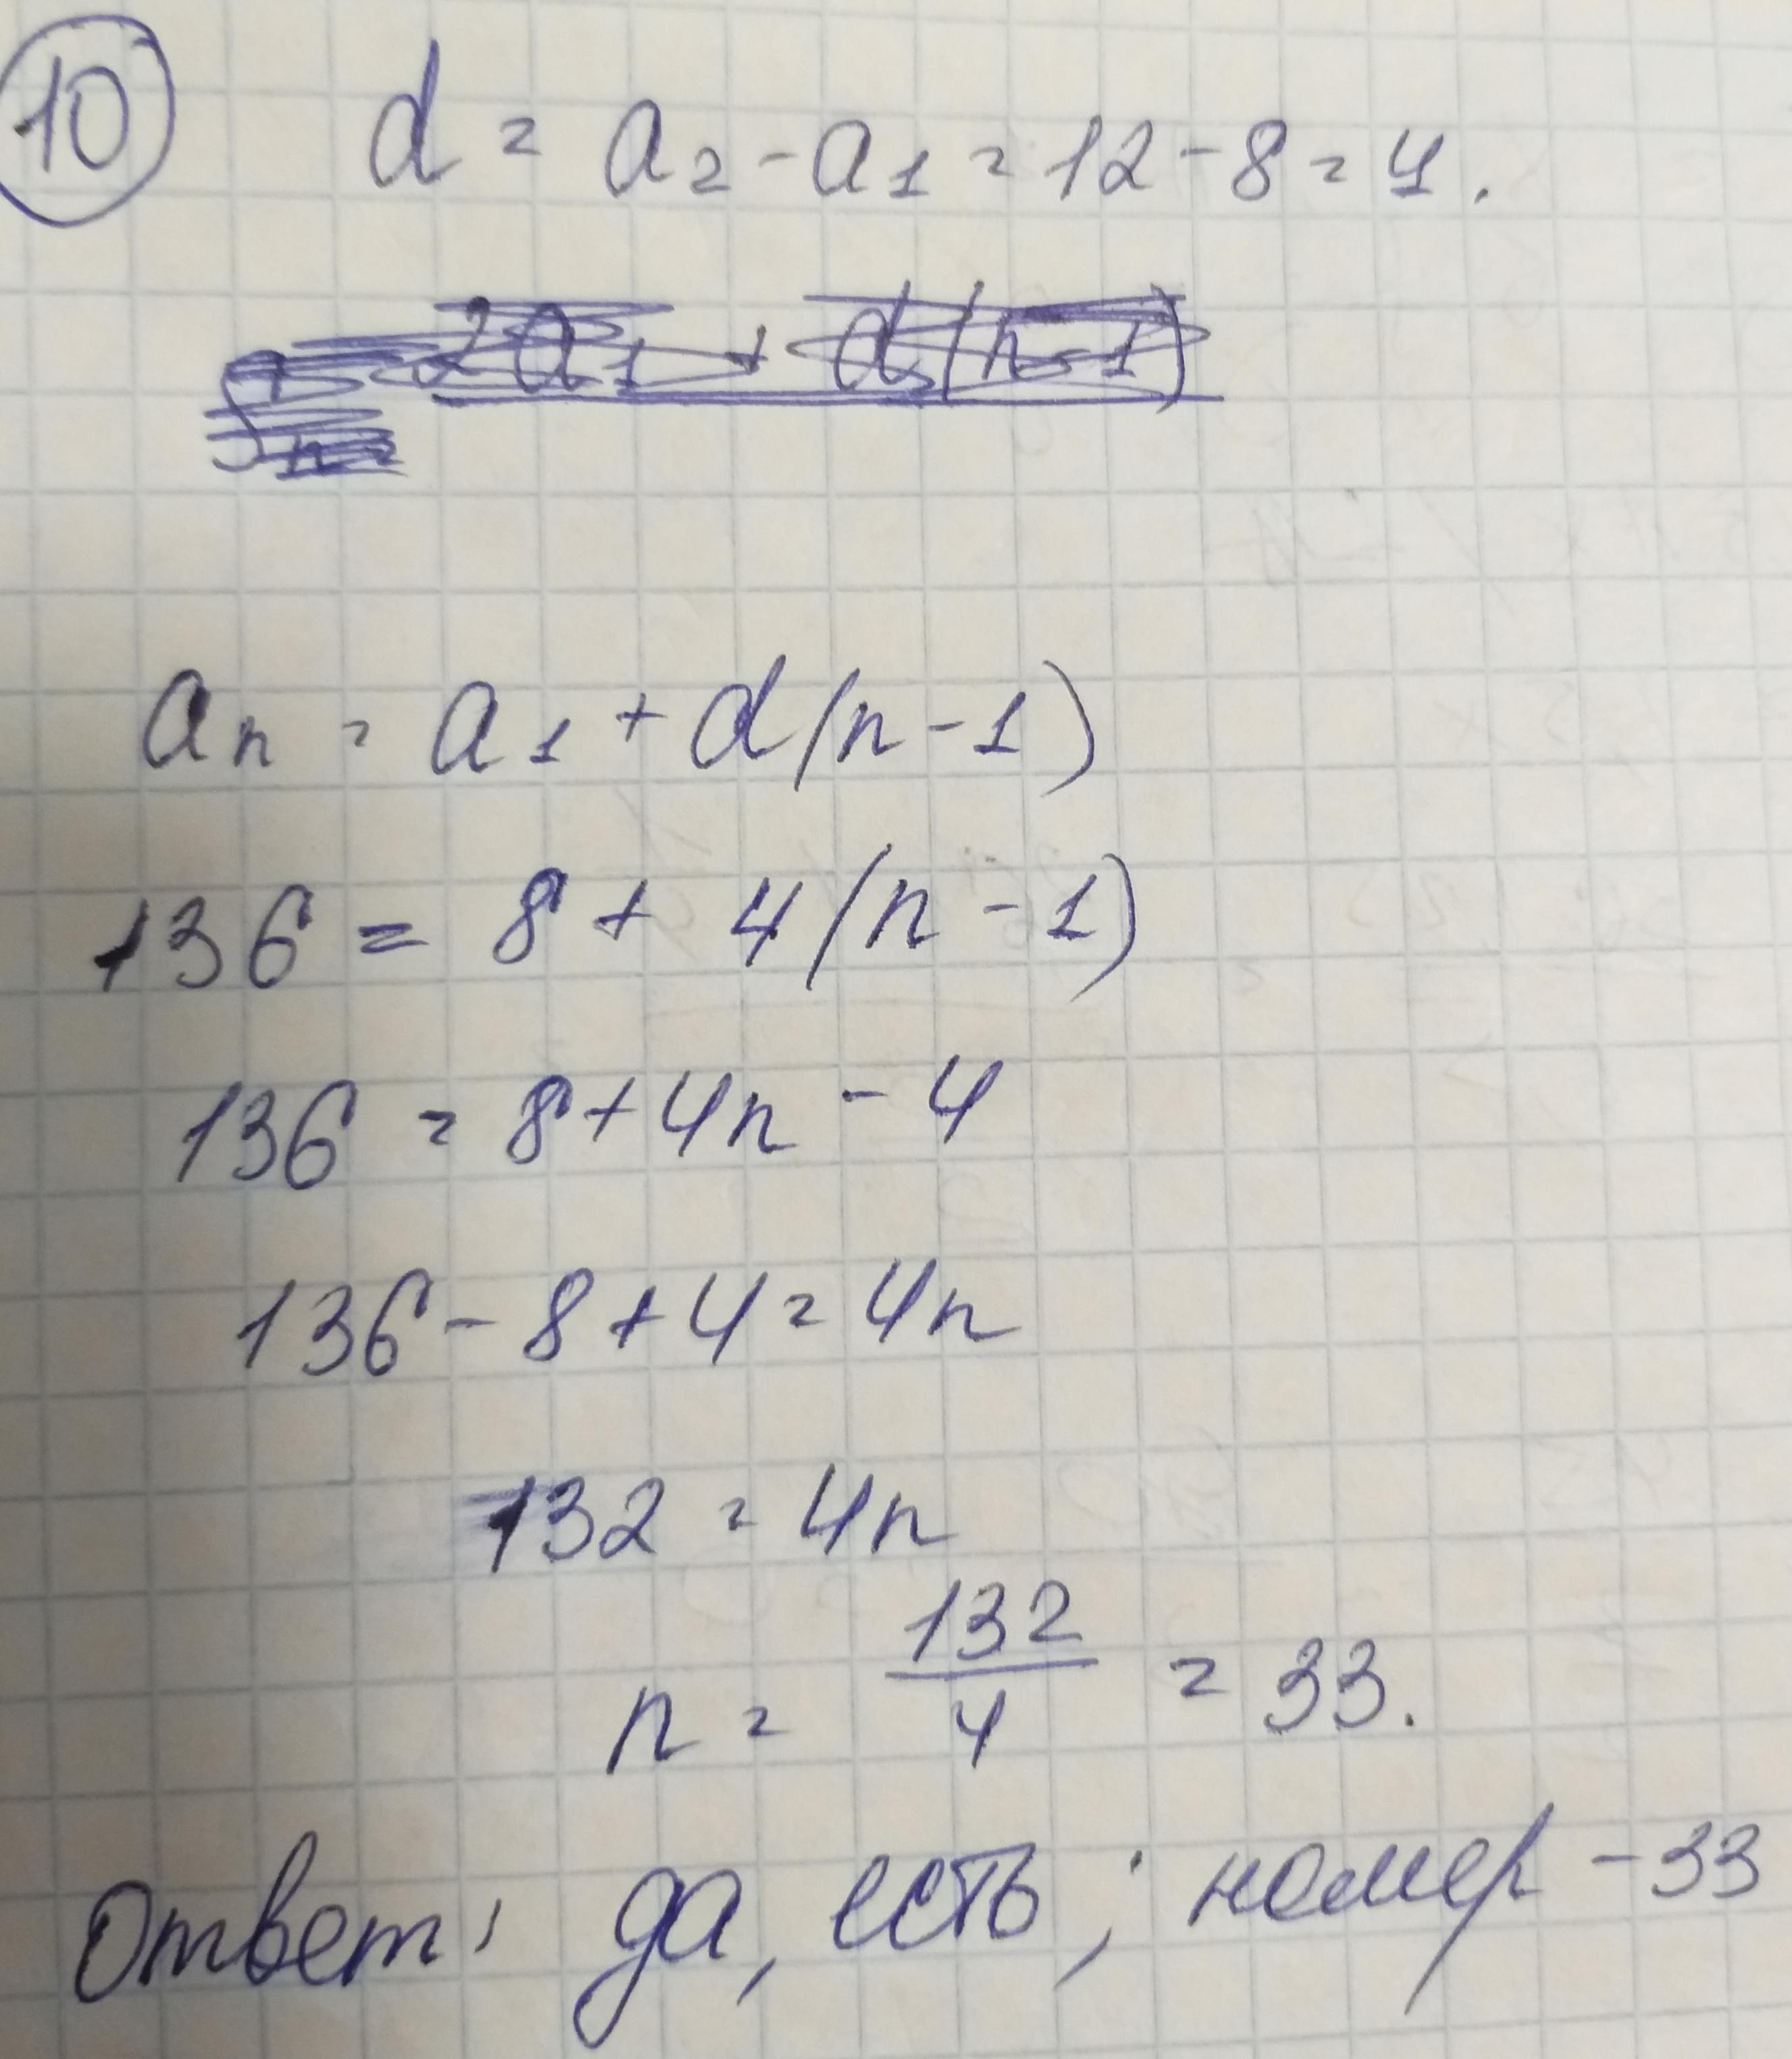 10 d = a₂ - a₁ = 12 - 8 = 4.
2a₁ + d(n-1)
Sn =
an = a₁ + d(n-1)
136 = 8 + 4(n-1)
136 = 8 + 4n - 4
136 - 8 + 4 = 4n
132 = 4n
n = 132/4 = 33.
Ответ: да, есть; номер - 33